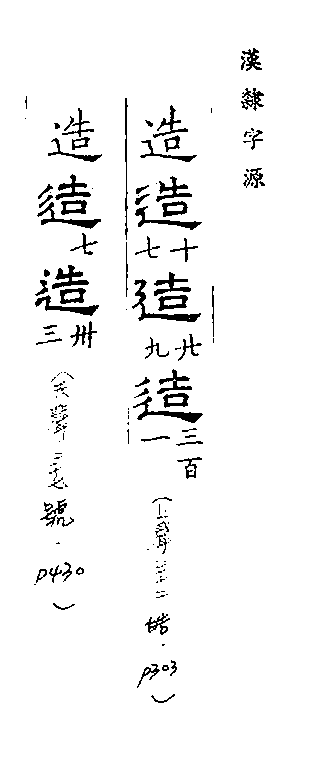 漢隸字源
造造十七造廿九造三百一(上聲三十二皓.p303)
造造七造卅三(去聲三十七號.p430)